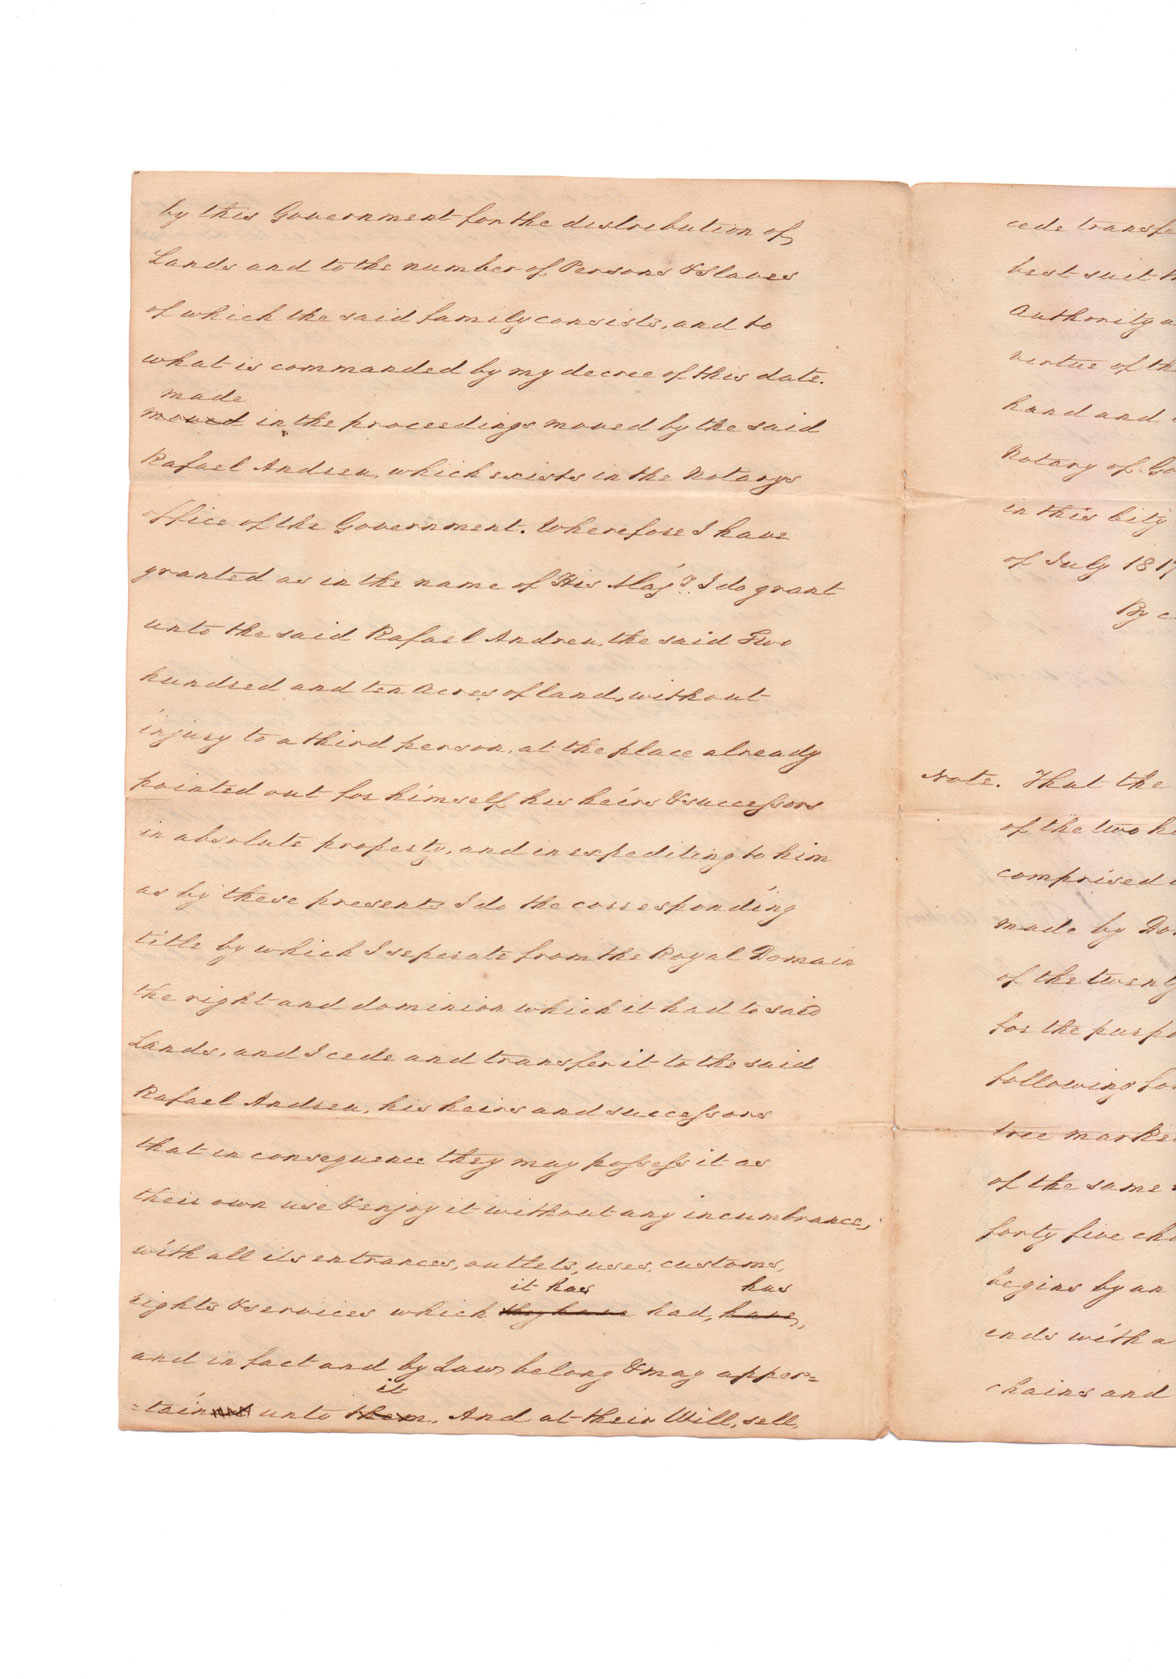 by this Government for the distribution of
Lands and to the number of Persons & Slaves
of which the said family consists, and to
what is commanded by my decree of this date.
made
moved in the proceedings moved by the said
Rafael Andreu, which exists in the Notarys
office of the Government. Wherefore I have
granted as in the name of His Maj.y I do grant
unto the said Rafael Andreu, the said Two
hundred and ten Acres of land, without
injury to a third person, at the place already
pointed out for himself, his heirs & successors
in absolute property, and in expediting to him
as by these presents I do the corresponding
title by which I seperate from the Royal Domain
the right and dominion which it had to said
Lands, and I cede and transfer it to the said
Rafael Andreu, his heirs and successors
that in consequence they may possess it as
their own use & enjoy it without any incumbrance,
with all its entrances, outlets, uses, customs,
it has has
rights & services which they have had, have,
and in fact and by Law, belong & may apper=
it
=tain unto them. And at their Will, sell,
cede transfe
best suit th
Authority a
virtue of th
hand and
Notary of Go
in this City
of July 181
By c
Note. That the
of the two h
comprised
made by Do
of the twenty
for the purp
following fo
tree marke
of the same
forty five cha
begins by an
ends with a
chains and